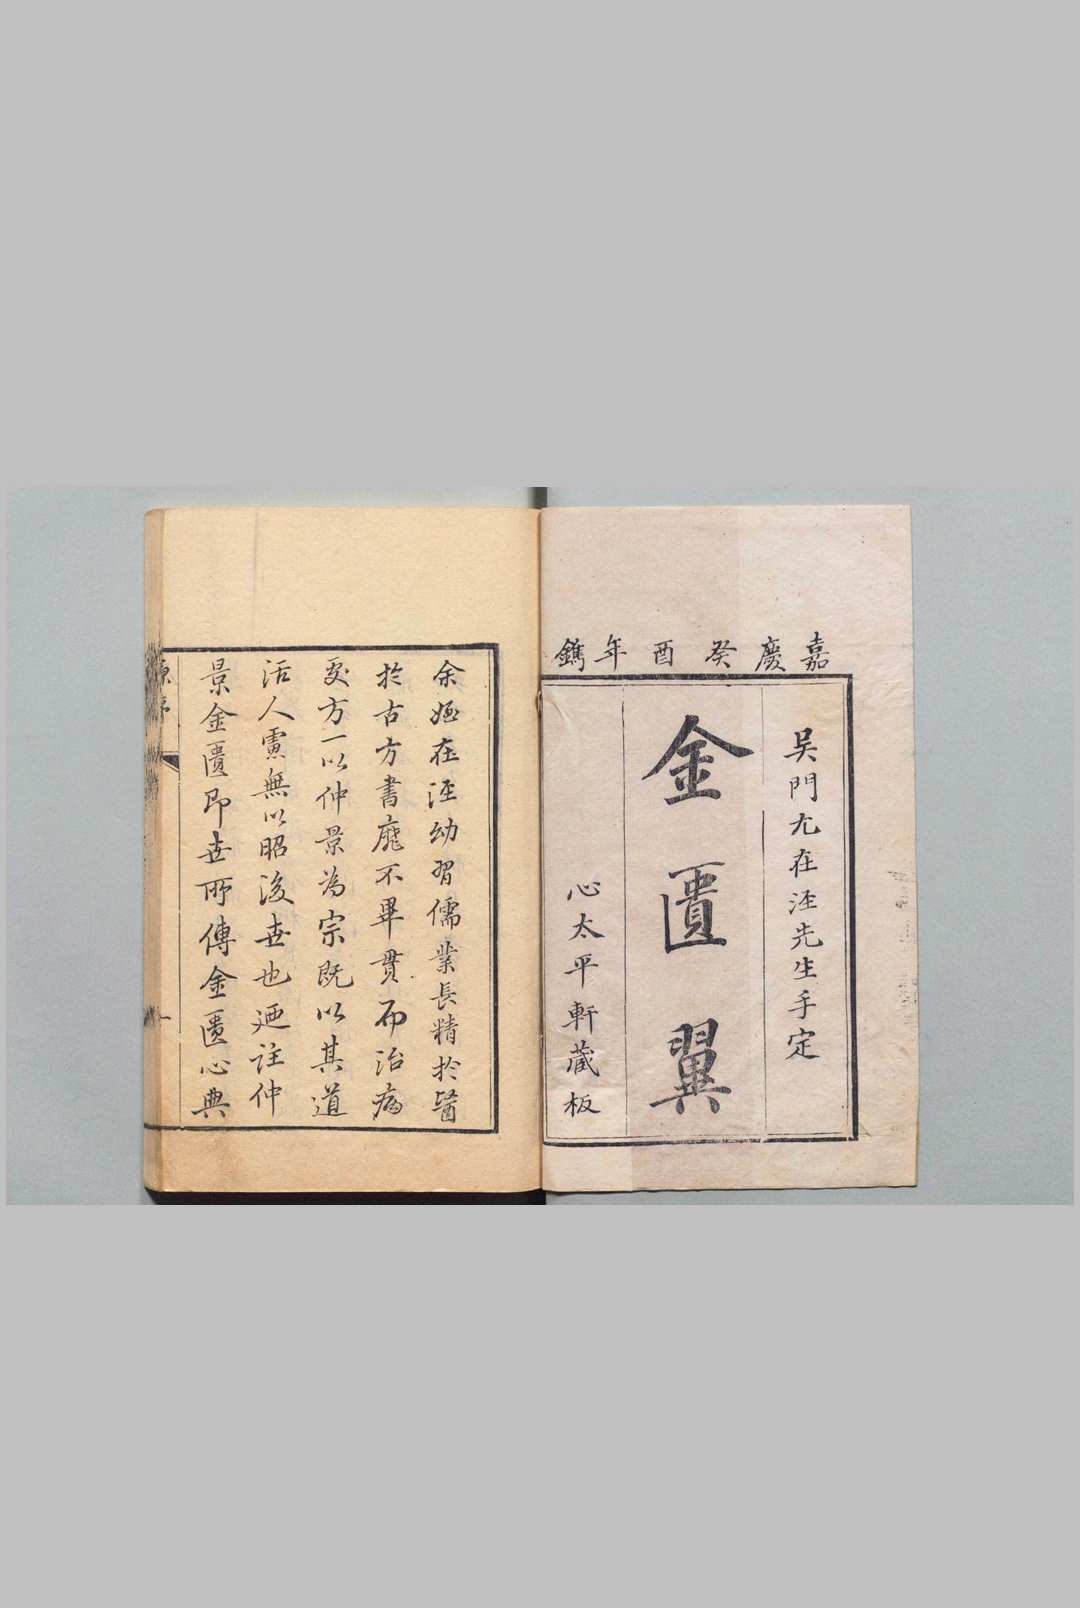 嘉慶癸酉年鐫
吴門尤在涇先生手定
金匱翼
心太平軒藏板
余姪在涇幼習儒業長精於醫
於古方書靡不畢貫而治病
處方一以仲景為宗既以其道
活人慮無以昭後世也廼註仲
景金匱即世所傳金匱心典
原序
一